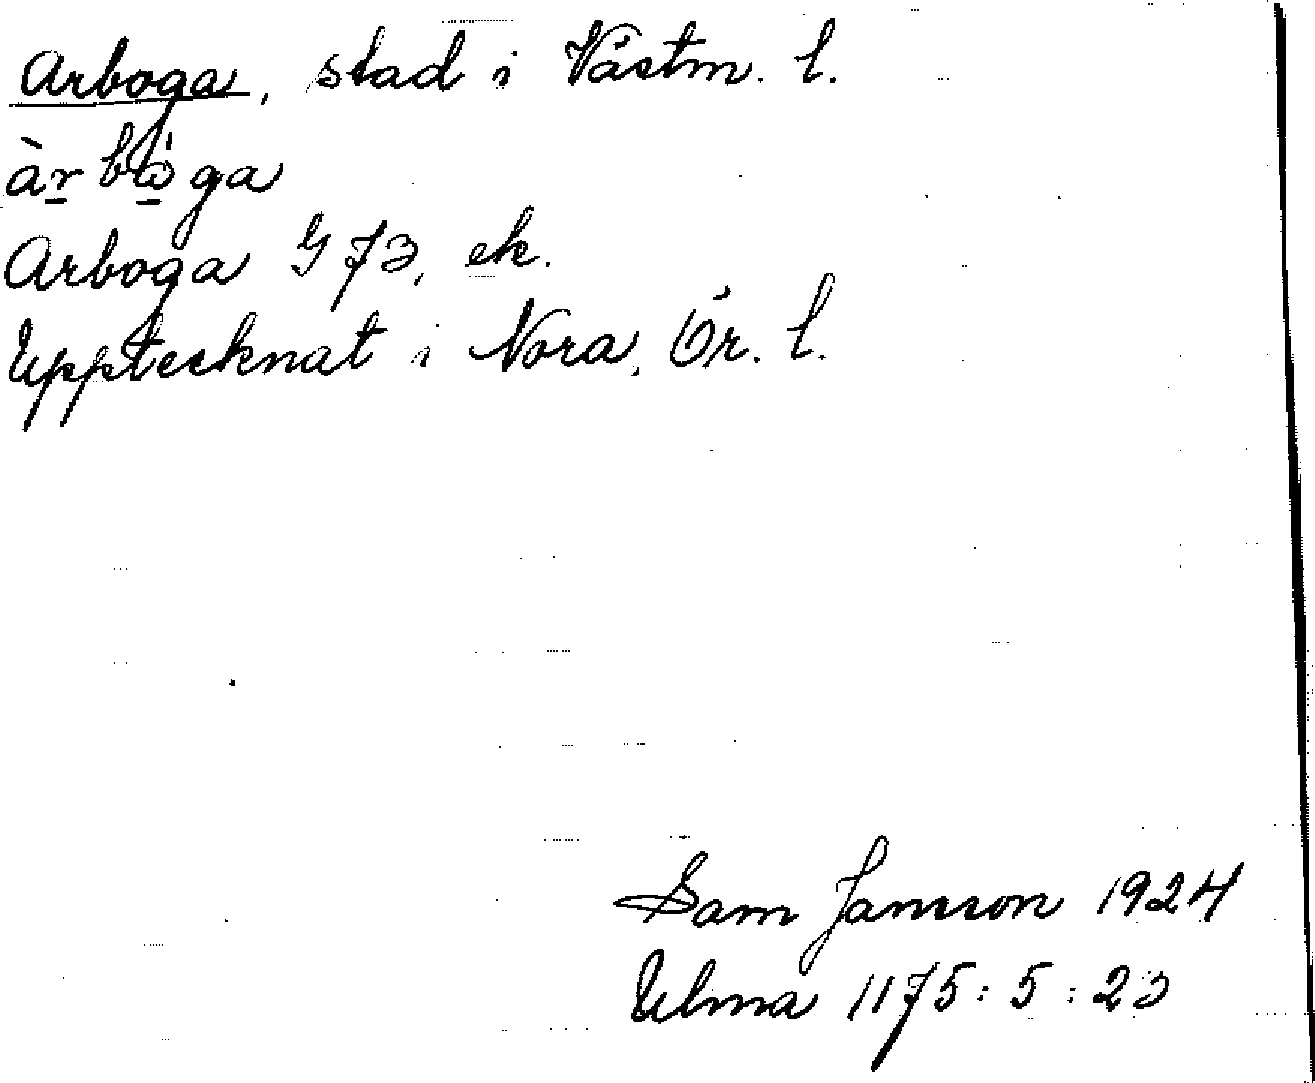 Arboga, stad i Västm. l.
àr bå̀ga
Arboga G 73, ek.
Upptecknat i Nora, Ör. l.
Sam Jansson 1924
Ulma 1175:5:23